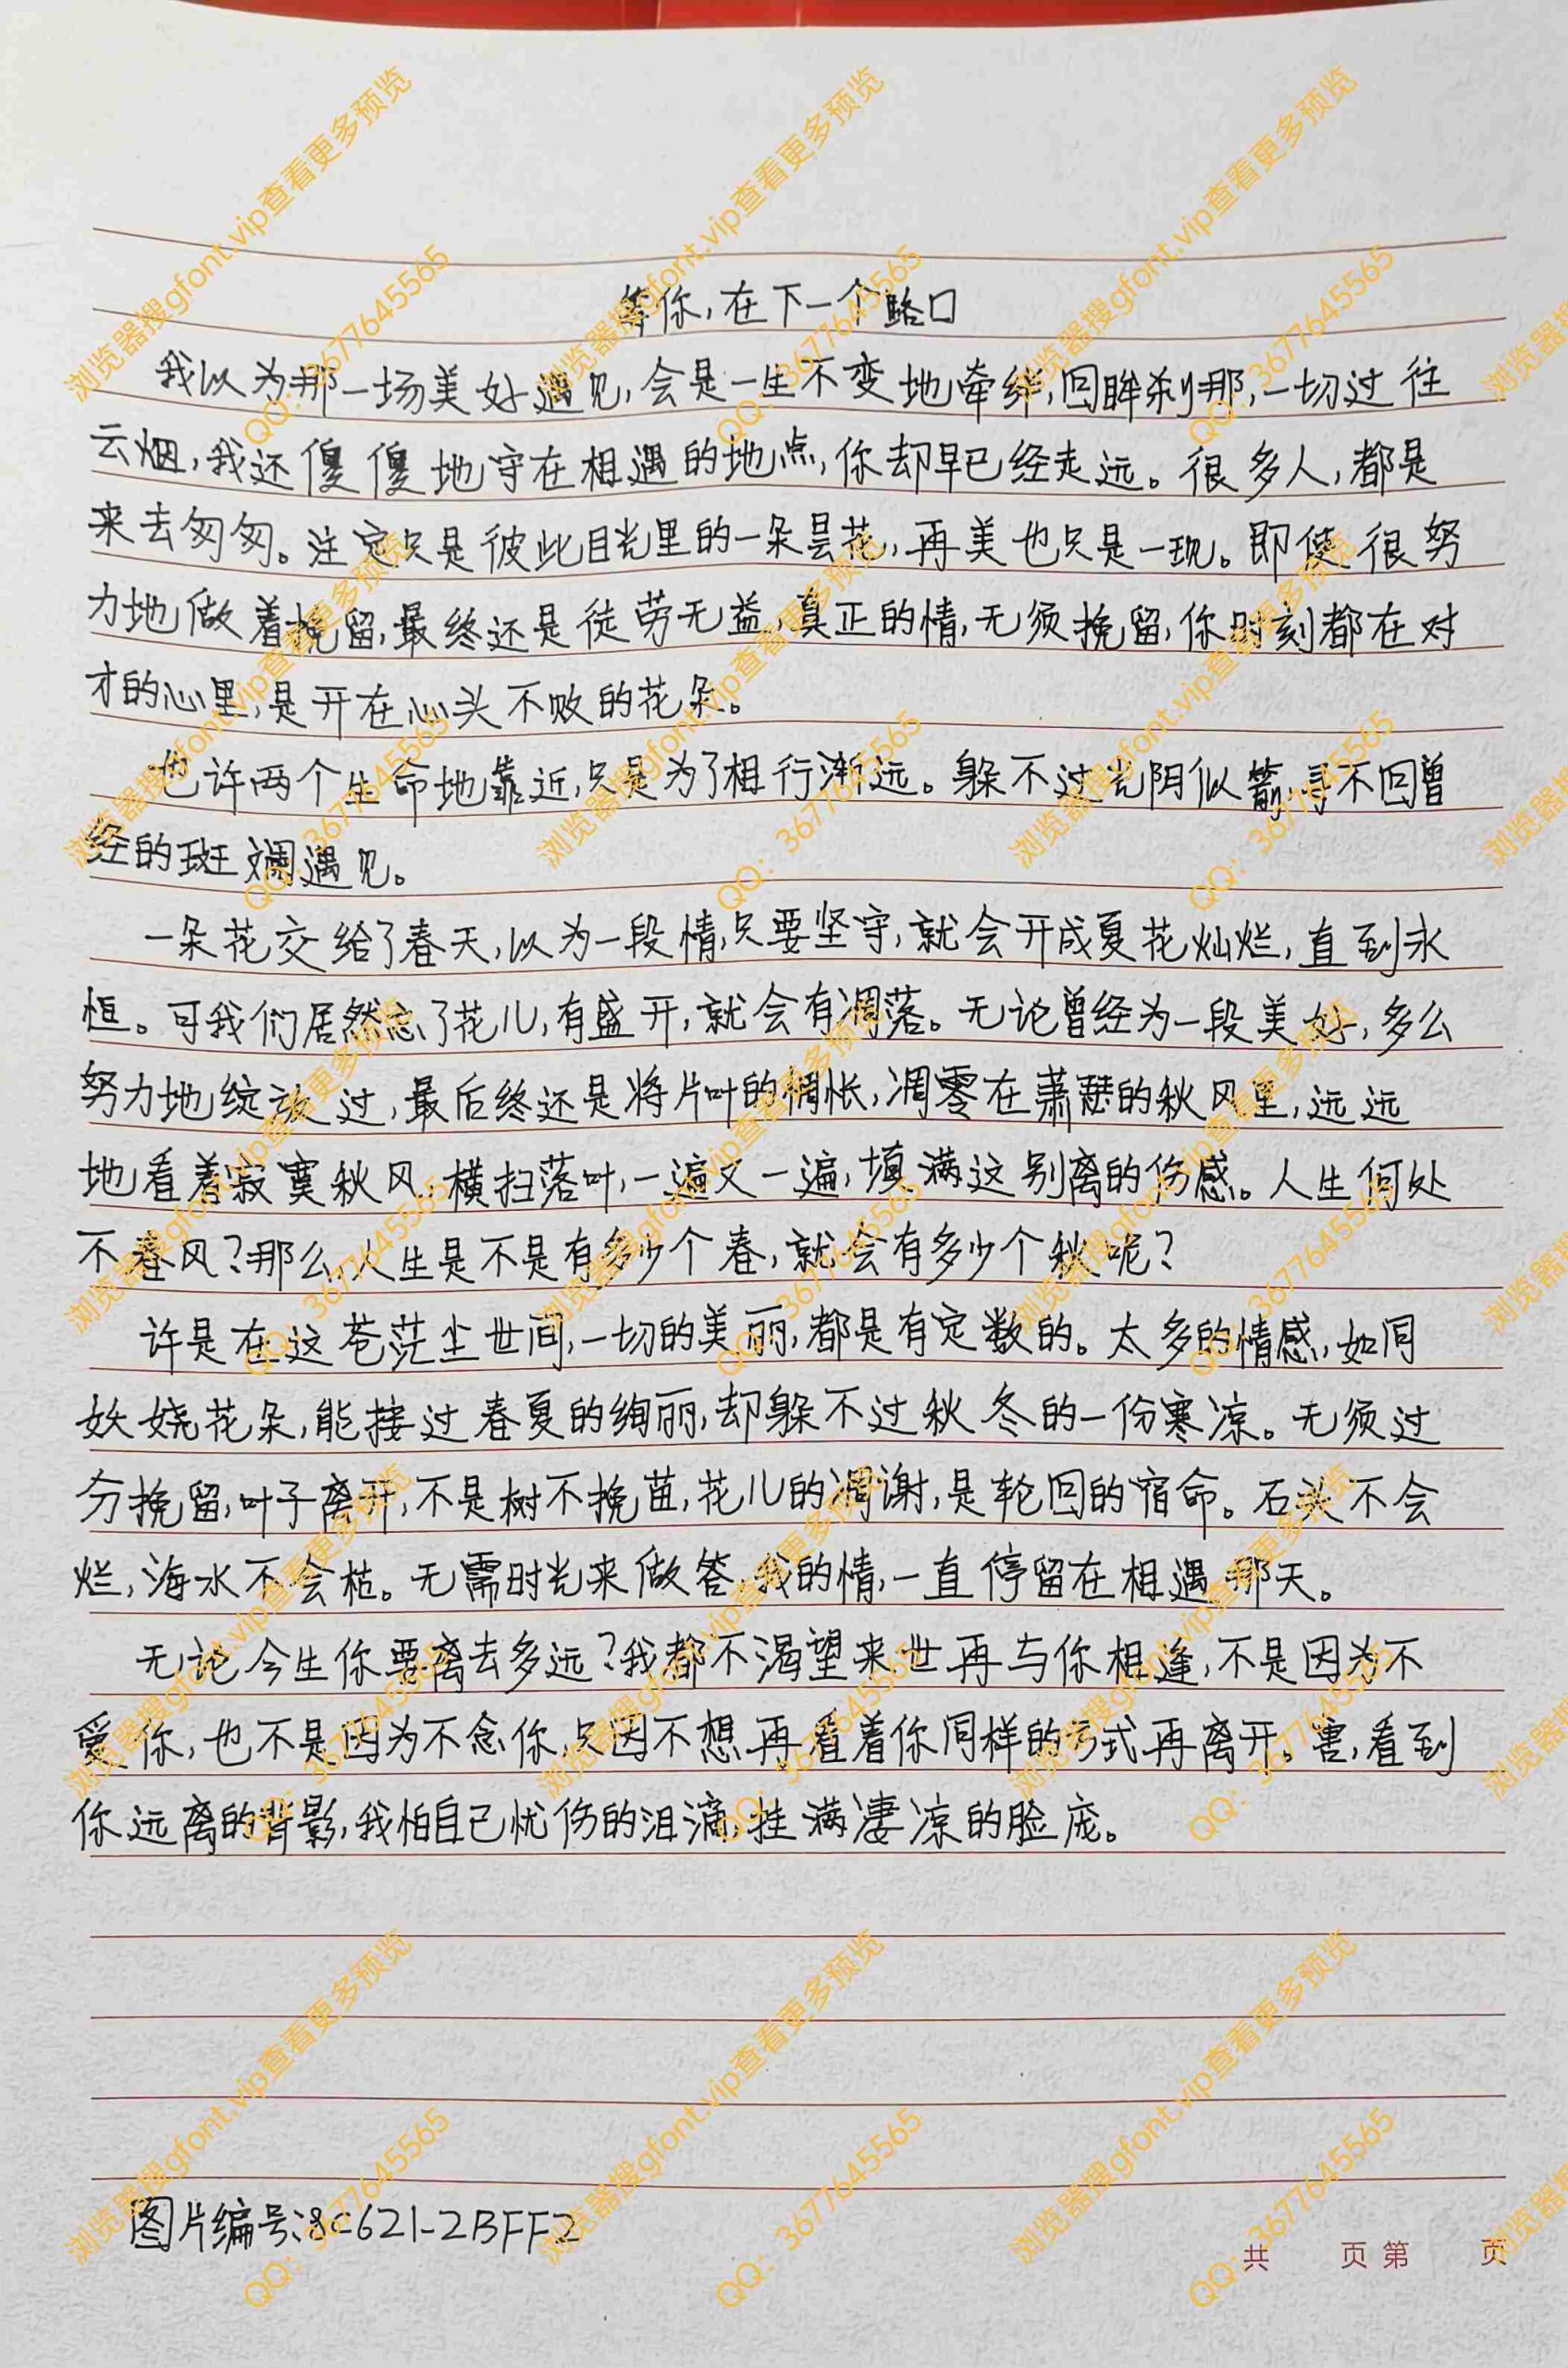 等你,在下一个路口
我以为那一场美好遇见,会是一生不变地牵绊,回眸刹那,一切过往
云烟,我还傻傻地守在相遇的地点,你却早已经走远。很多人,都是
来去匆匆。注定只是彼此目光里的一朵昙花,再美也只是一现。即使很努
力地做着挽留,最终还是徒劳无益,真正的情,无须挽留,你时刻都在对
才的心里,是开在心头不败的花朵。
也许两个生命地靠近,只是为了相行渐远。躲不过光阴似箭,寻不回曾
经的斑斓遇见。
一朵花交给了春天,以为一段情,只要坚守,就会开成夏花灿烂,直到永
恒。可我们居然忘了花儿,有盛开,就会有凋落。无论曾经为一段美好,多么
努力地绽放过,最后终还是将片叶的惆怅,凋零在萧瑟的秋风里,远远
地看着寂寞秋风,横扫落叶,一遍又一遍,填满这别离的伤感。人生何处
不春风?那么,人生是不是有多少个春,就会有多少个秋呢?
许是在这苍茫尘世间,一切的美丽,都是有定数的。太多的情感,如同
妖娆花朵,能接过春夏的绚丽,却躲不过秋冬的一份寒凉。无须过
分挽留,叶子离开,不是树不挽苗,花儿的凋谢,是轮回的宿命。石头不会
烂,海水不会枯。无需时光来做答,我的情,一直停留在相遇那天。
无论今生你要离去多远?我都不渴望来世再与你相逢,不是因为不
爱你,也不是因为不念你,只因不想再看着你同样的方式再离开。害,看到
你远离的背影,我怕自己忧伤的泪滴,挂满凄凉的脸庞。
图片编号:8C621-2BFF2
共 页 第 页
浏览器搜gfont.vip查看更多预览
QQ: 3677645565